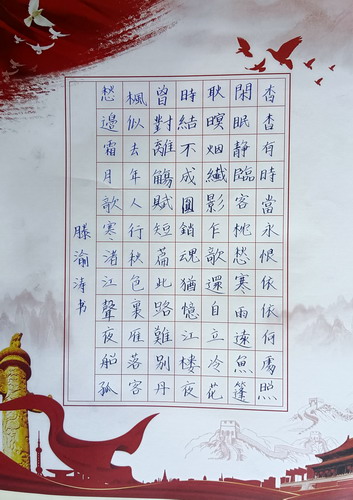 杳杳有時當永恨依依何處照
閑眠靜臨客桃愁寒雨遠魚篷
耿暝烟纖影乍歌還自立冷花
時結不成圓銷魂猶憶江楼夜
曾對離觴賦短篇此路難别丹
楓似去年人行秋色裏雁落客
愁邊霜月歌寒渚江聲夜船孤
滕渝涛书